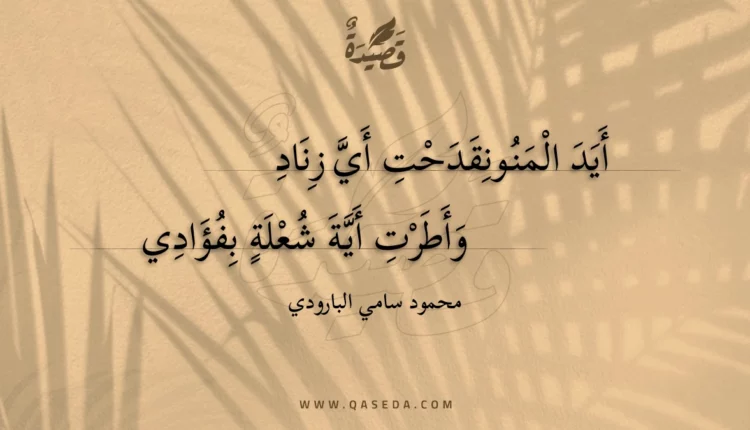 قَصِيْدَةٌ
أَيَدَ الْمَنُونِقَدَحْتِ أَيَّ زِنَادِ
وَأَطَرْتِ أَيَّةَ شُعْلَةٍ بِفُؤَادِي
محمود سامي البارودي
WWW.QASEDA.COM